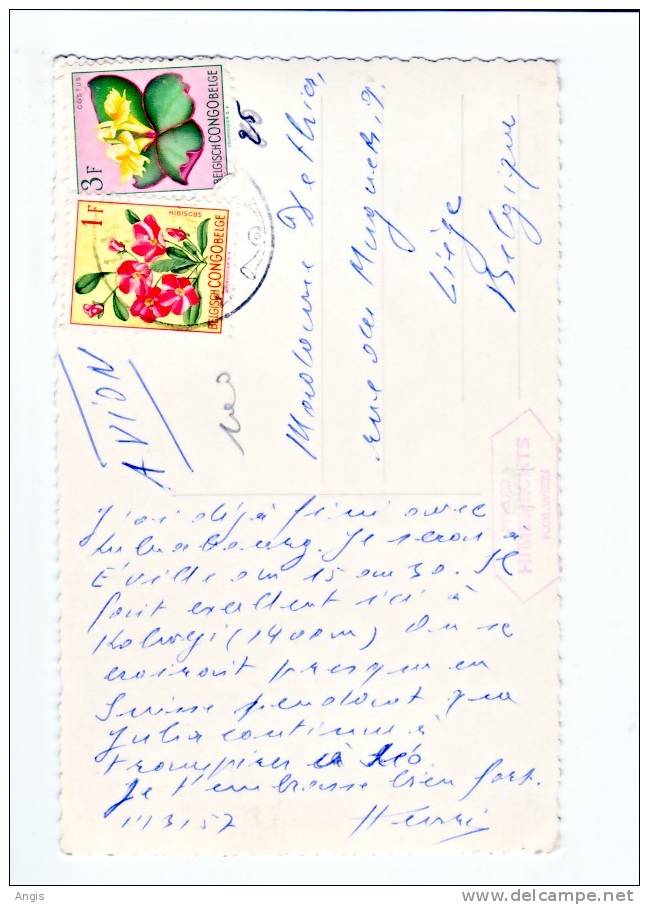 COSTUS
3F
BELGISCH CONGO BELGE
1F
HIBISCUS
BELGISCH CONGO BELGE
25
AVION
Madame Dethier,
rue des Muguets 9.
Liège
Belgique
KOLWEZI
J'ai déjà fini avec
Luluabourg. Je serai à
E'ville du 15 au 30. Il
fait excellent ici à
Kolwezi (1400m) On se
croirait presque en
Suisse pendant que
Julia continue à
transpirer à Léo.
Je t'embrasse bien fort.
11/3/57 Henri
Angis
www.delcampe.net